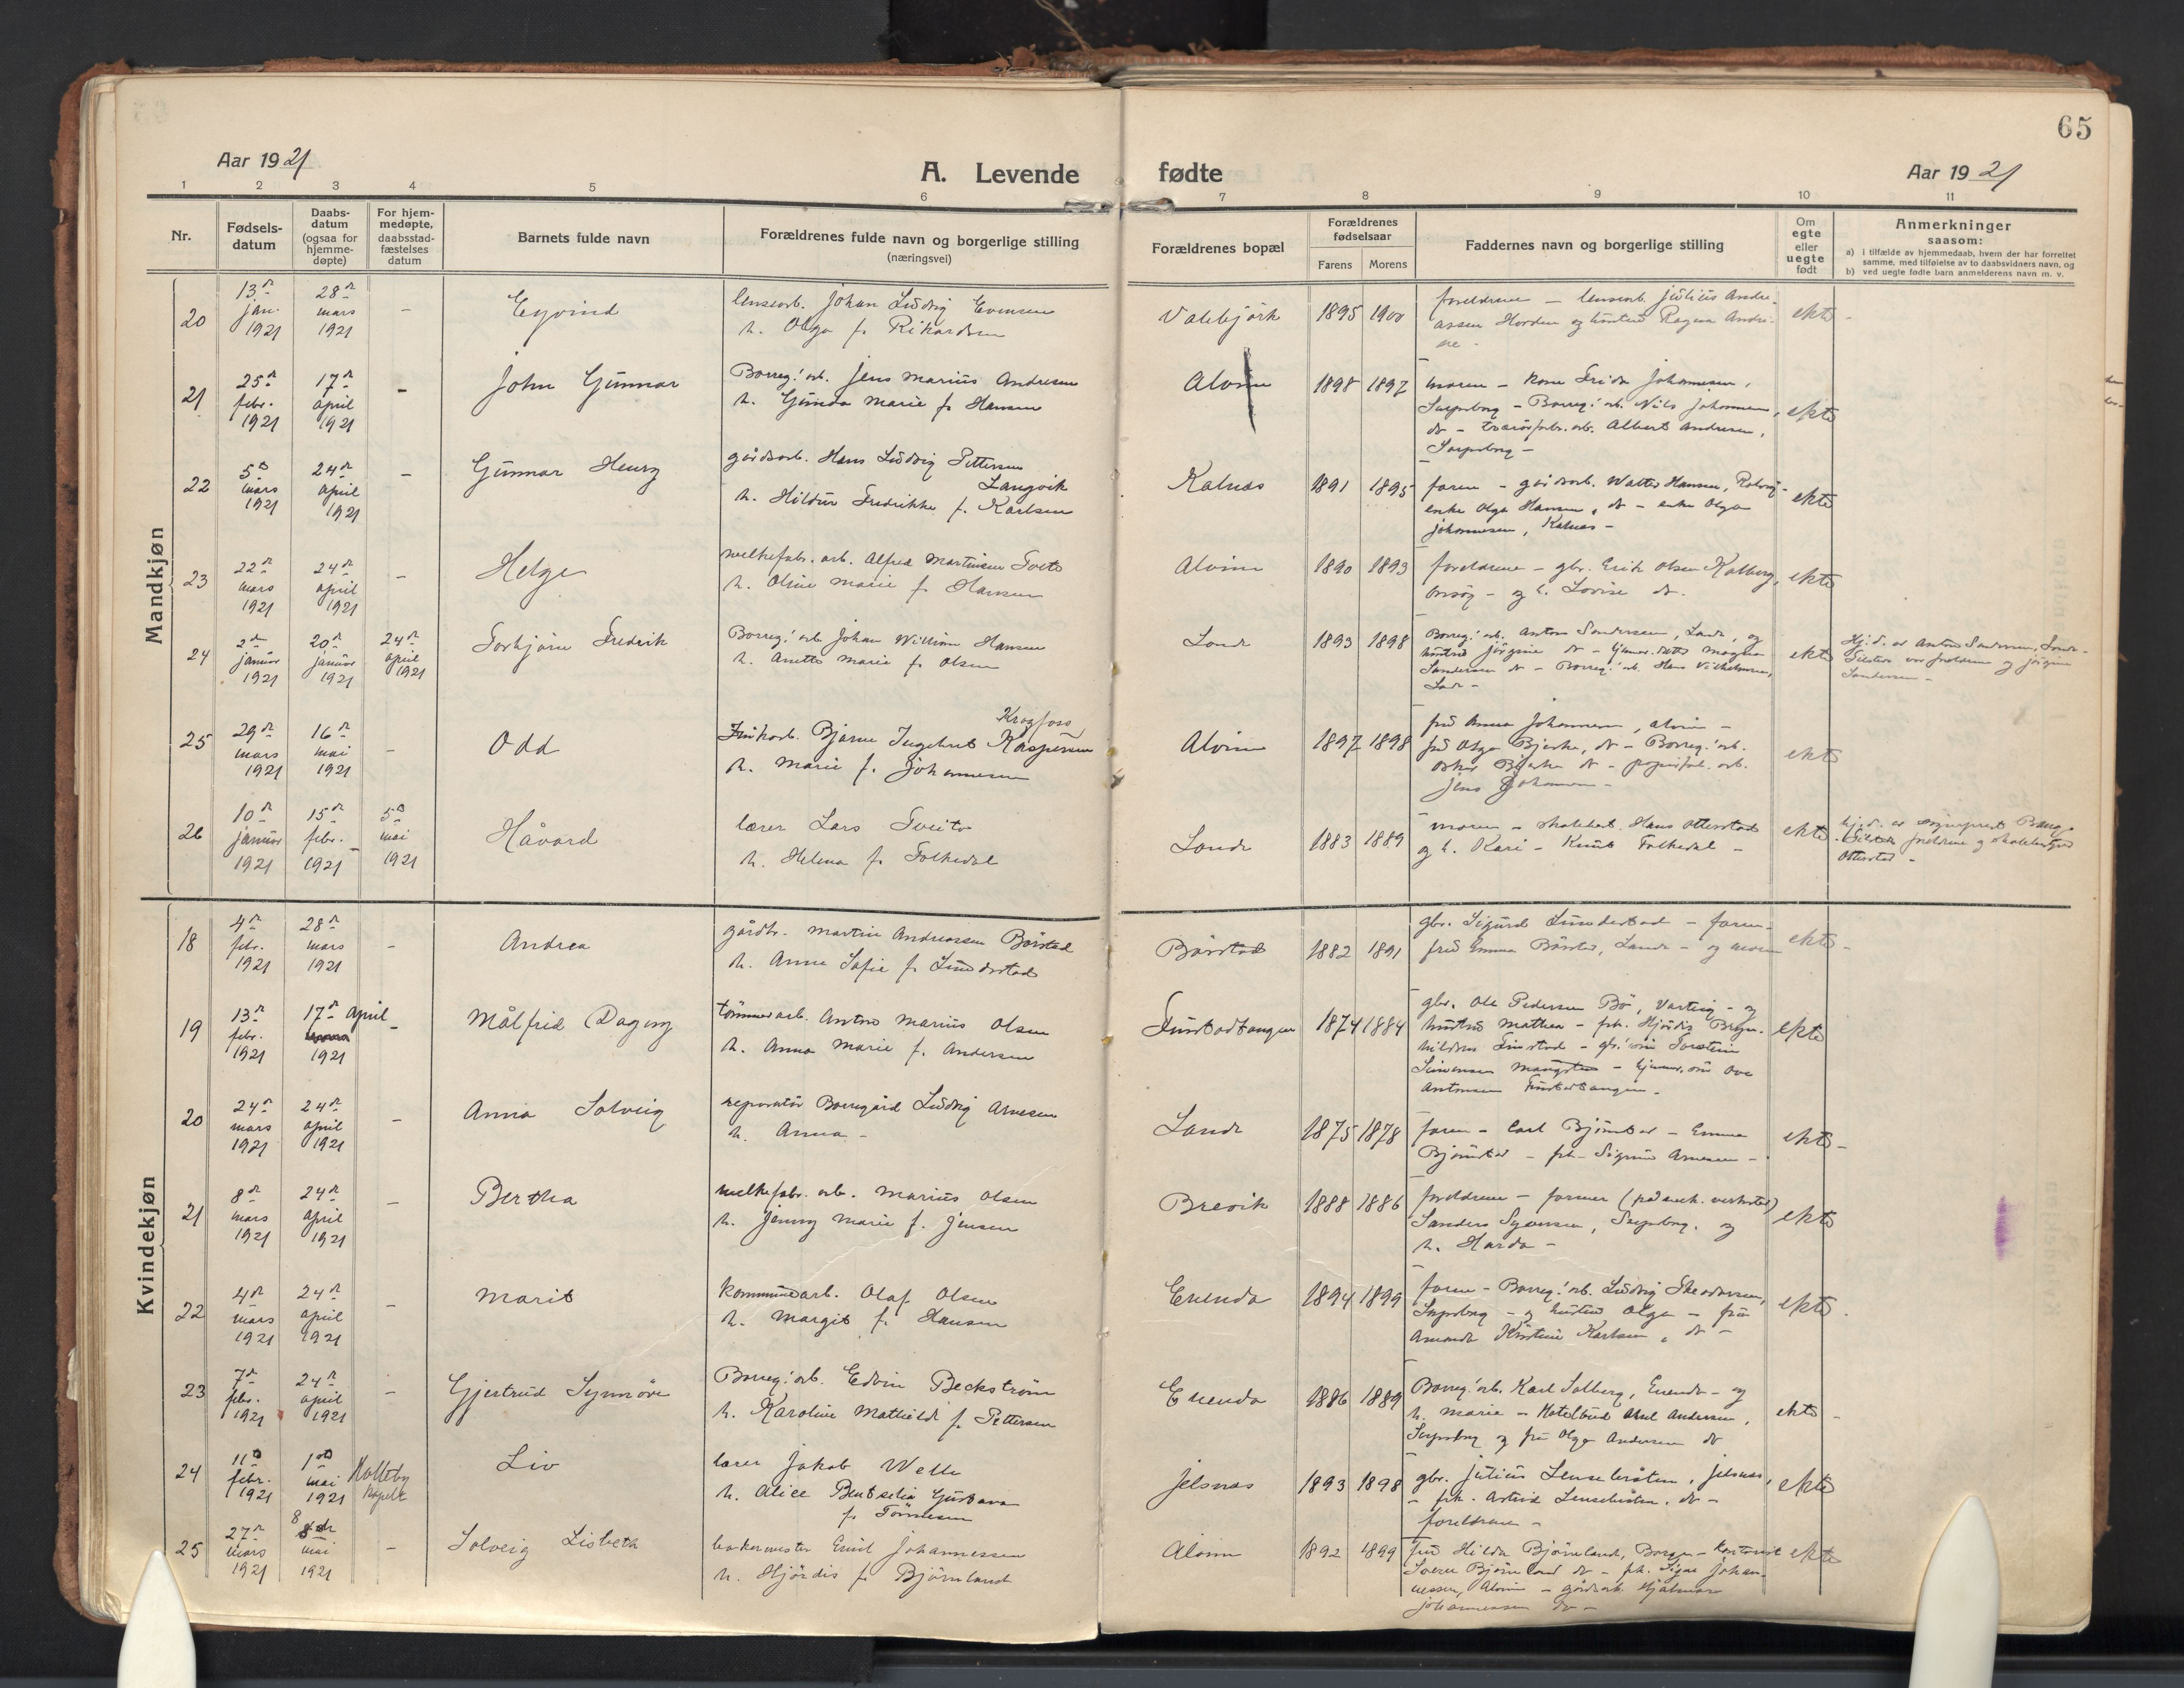 65
Aar 1921
A. Levende fødte
Aar 1921
1 2 3 4 5 6 7 8 9 10 11
Nr.
Fødsels-
datum
Daabs-
datum
(ogsaa for
hjemme-
døpte)
For hjem-
medøpte,
daabsstad-
fæstelses
datum
Barnets fulde navn
Forældrenes fulde navn og borgerlige stilling
(næringsvei)
Forældrenes bopæl
Forældrenes
fødselsaar
Farens Morens
Faddernes navn og borgerlige stilling
Om
egte
eller
uegte
født
Anmerkninger
saasom:
a) i tilfælde av hjemmedaab, hvem der har forrettet
samme, med tilføielse av to daabsvidners navn, og
b) ved uegte fødte barn anmelderens navn m. v.
Mandkjøn
20 13de jan. 1921 28de mars 1921 – Eyvind
lensearb. Johan Ludvig Evensen
h. Olga f. Rikardsen
Valebjørk 1895 1900
foreldrene – lensearb. Julius Andre-
assen Horden og hustru Ragna Andri-
ne –
ekte –
21 25de febr. 1921 17de april 1921 – John Gunnar
Borreg.' arb. Jens Marius Andresen
h. Gunda Marie f. Hansen
Alvim 1898 1897
moren – kone Frida Johannesen,
Sarpsborg – Borreg.' arb. Nils Johannesen,
do – arb. Albert Andresen,
Sarpsborg –
ekte
22 5te mars 1921 24de april 1921 – Gunnar Henry
gårdsarb. Hans Ludvig Pettersen
Langvik
h. Hildur Fredrikke f. Karlsen
Kalnæs 1891 1895
faren – gårdsarb. Walter Hansen,
enke Olga Hansen, do – enke Olga
Johannesen, Kalnæs –
ekte
23 22de mars 1921 24de april 1921 – Helge
melkefabr. arb. Alfred Martinsen Tveto
h. Oline Marie f. Hansen
Alvim 1890 1893
foreldrene – gbr. Erik Olsen Kolberg,
Onsøy – og h. Lovise do.
ekte
24 2den januar 1921 20de januar 1921 24de april 1921 Torbjørn Fredrik
Borreg.' arb. Johan William Hansen
h. Anette Marie f. Olsen
Lande 1893 1898
Borreg.' arb. Anton Sandersen, Lande, og
hustru Jørgine do – hjemv. datter Magna
Sandersen do – Borreg.' arb. Hans Vilhelmsen,
Lande –
ekte
Hj. d. av Anton Sandersen, Lande –
Tilstede var foreldrene og Jørgine
Sandersen –
25 29de mars 1921 16de mai 1921 – Odd
Krogfoss
Bjarne Ingebret Kaspersen
h. Marie f. Johannesen
Alvim 1897 1898
fru Anna Johannesen, Alvim –
fru Olga Bjerke, do – Borreg.' arb.
Oskar Bjerke do – papirfab. arb.
Jens Johannesen –
ekte
26 10de januar 1921 15de febr. 1921 5te mai 1921 Håvard
lærer Lars Tveito
h. Helena f. Folkedal
Lande 1883 1889
moren – skolebest. Hans Otterstad
og h. Kari – Knut Folkedal –
ekte
hj. d. av sogneprest Bang.
Tilstede foreldrene og skolebestyrer
Otterstad –
Kvindekjøn
18 4de febr. 1921 28de mars 1921 – Andrea
gårdbr. Martin Andreassen Børstad
h. Anna Sofie f. Lundestad
Børstad 1882 1891
gbr. Sigurd Lundestad – faren –
fru Emma Børstad, Lande – og moren
ekte –
19 13de febr. 1921 17de april 1921 – Målfrid Dagny
tømmerarb. Anton Marius Olsen
h. Anna Marie f. Andersen
Tunstadtangen 1874 1884
gbr. Ole Pedersen Bø, Varteig – og
hustru Mathea – frk. Hjørdis Bryn-
hildsen – gbr.' søn Torstein
Simensen – hjemv. søn Ove
Antonsen Tunstadtangen –
ekte
20 24de mars 1921 24de april 1921 – Anna Solveig
reparatør Borregård Ludvig Arnesen
h. Anna –
Lande 1875 1878
faren – Carl Bjørnstad – Emma
Bjørnstad – frk. Sigrun Arnesen –
ekte –
21 8de mars 1921 24de april 1921 – Bertha
melkefabr. arb. Marius Olsen
h. Jenny Marie f. Jensen
Brevik 1888 1886
foreldrene – former (på mek. verksted)
Sanders Syversen, Sarpsborg, og
h. Harda –
ekte
22 4de mars 1921 24de april 1921 – Marit
kommunearb. Olaf Olsen
h. Margit f. Hansen
Enenda 1894 1899
faren – Borreg.' arb. Ludvig Theodorsen,
Sarpsborg – og hustru Olga – fru
Amanda Kristine Karlsen, do –
ekte.
23 7de febr. 1921 24de april 1921 – Gjertrud Synnøve
Borreg.' arb. Edvin Beckstrøm
h. Karoline Mathilde f. Pettersen
Enenda 1886 1889
Borreg.' arb. Karl Solberg, Enenda – og
h. Marie – Axel Andersen,
Sarpsborg og fru Olga Andersen do
ekte –
24 11te febr. 1921 1ste mai 1921 Holleby kapell Liv
lærer Jakob Welle
h. Alice Bentselia Gustava
f. Tønnesen
Jelsnæs 1893 1898
gbr. Julius , Jelsnæs,
– frk. Astrid , do –
foreldrene –
ekte
25 27de mars 1921 8de mai 1921 – Solveig Lisbeth
bakermester Emil Johannessen
h. Hjørdis f. Bjørnland
Alvim 1892 1899
fru Hilda Bjørnland, Borgen – kontorist
Sverre Bjørnland do – frk. Signe Johan-
nessen, Alvim – gårdsarb. Hjalmar
Johannessen do –
ekte